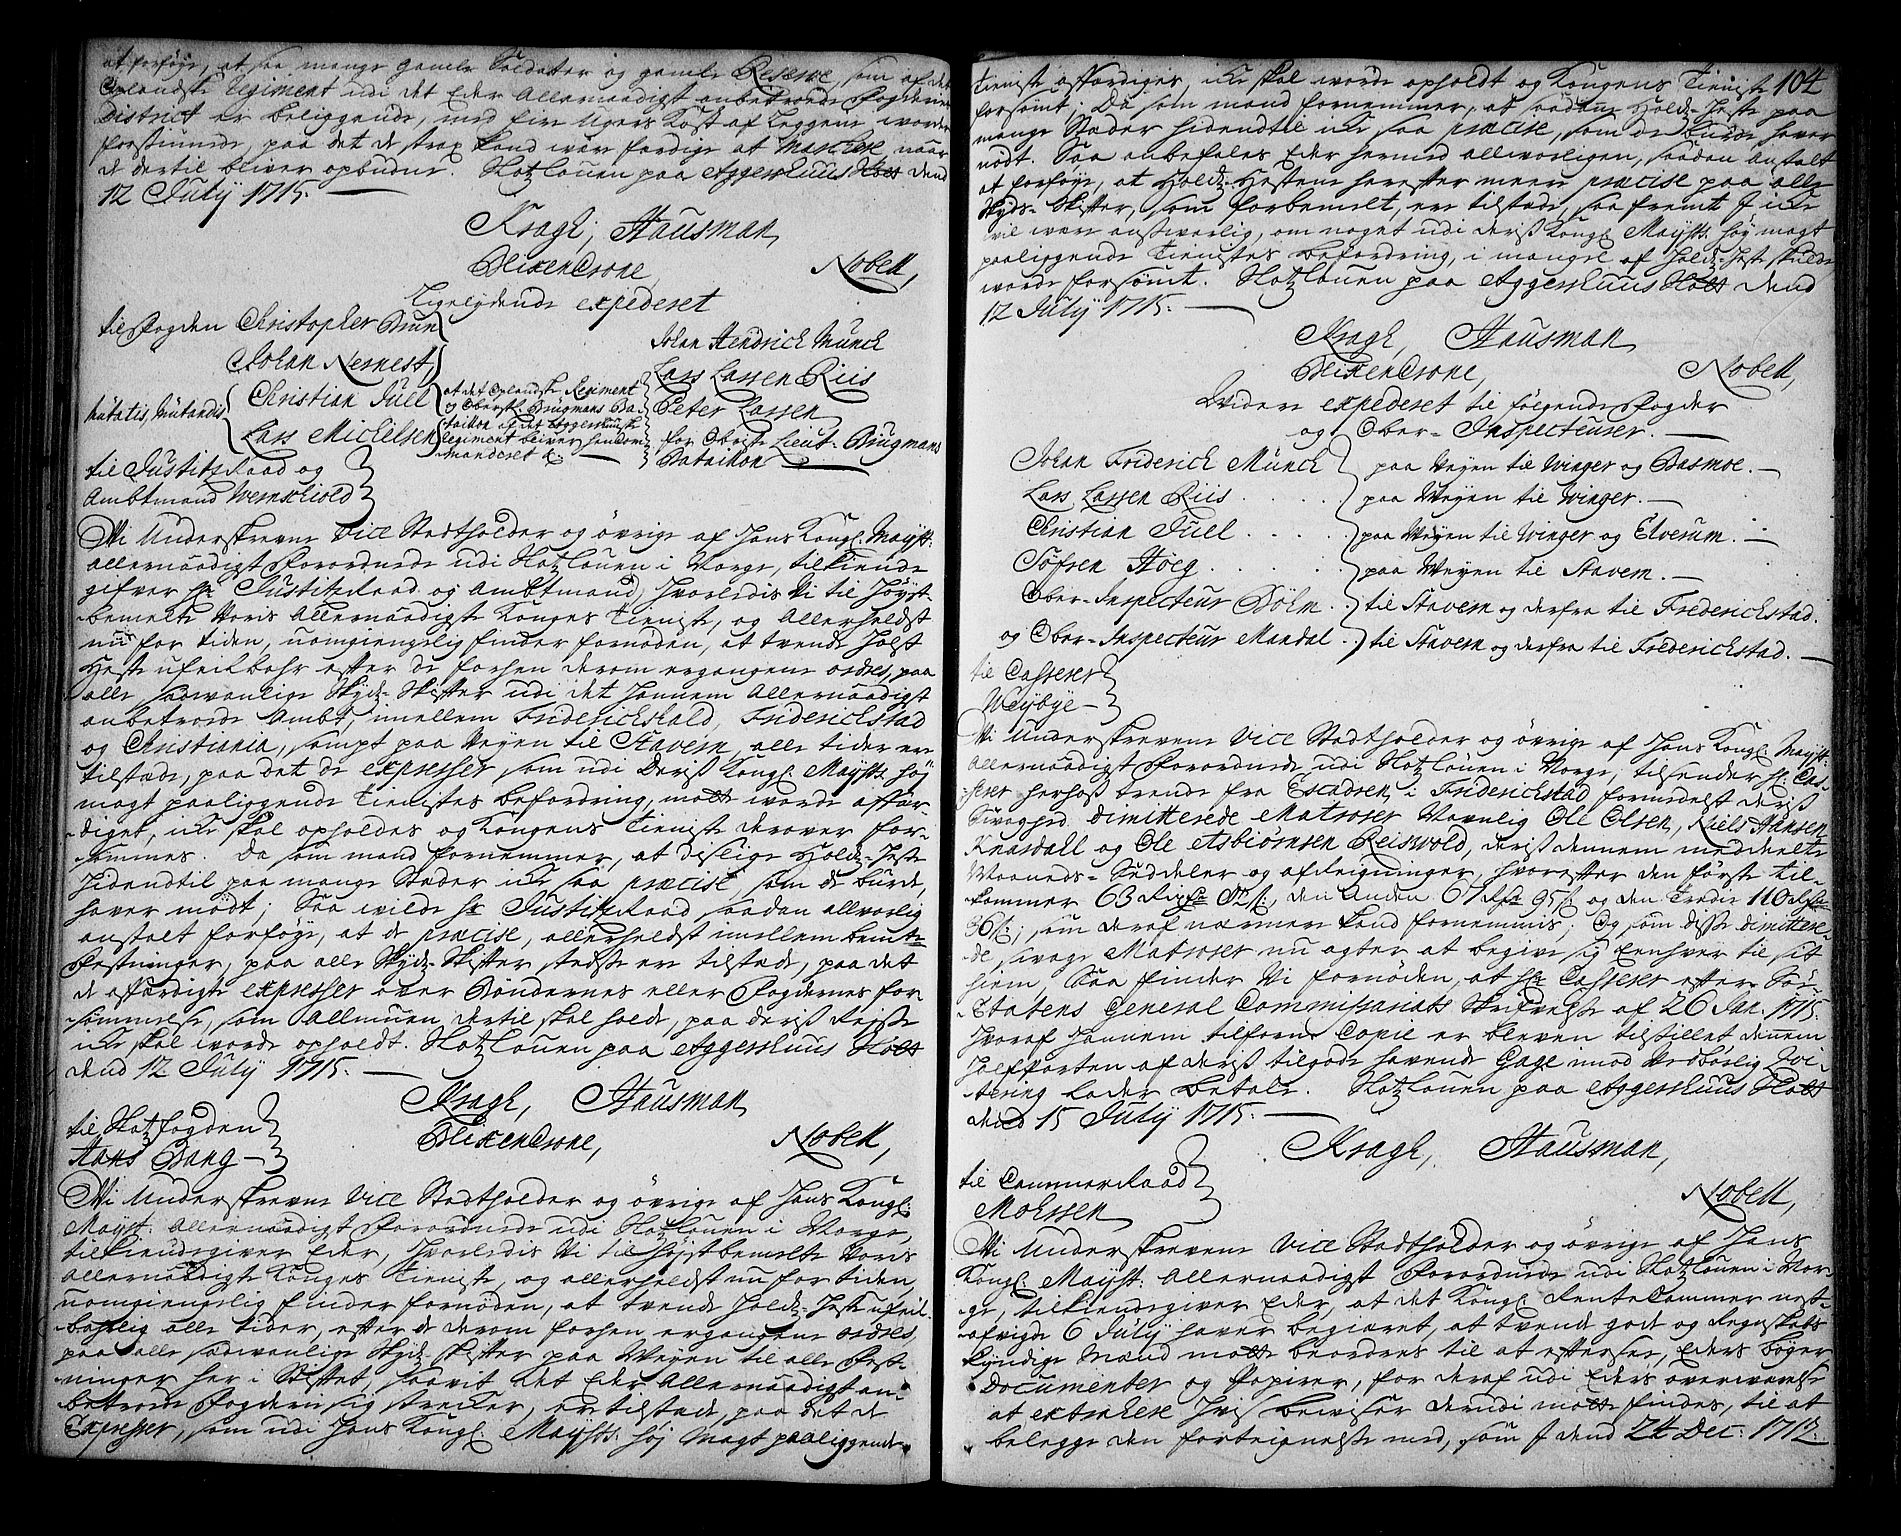 at forføye, at saa mange gamle Soldater og gamle Reserve, som af det
Oplandske Regiment udi det Eder Allernaadigst anbetroede Fogderies
District er beliggende, med fire Ugers Kost af Leggene worder
forsiunede, paa det de strax kand were færdige at Marchere naar
de dertil bliver opbudne. Slotzlouen paa Aggershuus Slott dend
12 July 1715.
Kragh, Hausman,
BlixenCrone, Nobell,
Ligelydende expederet
til Fogden Christopher Brun
Johan Nernest,
mutatis, Mutandis Christian Juel
Lars Michelsen
at det Oplandske Regiment
og Oberstl. Brügmans Ba-
taillon af det Aggershuusiske
Regiment bliver sandom-
manderet &.
Johan Hendrich Munck
Lars Larsen Riis
Peter Larsen
for Obriste Lieut: Brügmans
Bataillon
til Justitz Raad og
Ambtmand Wernschiold
Wi Underskrevne Vice Stadtholder og øvrige af Hans Kongl: Mayst:
allernaadigst Forordnede udi Slotzlouen i Norge, tilkiende
gifver Hr Justitz Raad og Ambtmand, hvorledis Vi til Høyst-
bemelte Voris Allernaadigste Konges Tieniste, og Allerhelst
nu for tiden, uomgiengelig finder fornøden, at tvende Holdz
Heste ufeilbahr efter de forhen derom ergangene ordres, paa
alle sædvanlige Skydz-Skifter udi det hannem Allernaadigst
anbetroede Ambt, imellem Friderichshald, Friderichstad
og Christiania, sampt paa Veyen til Stavern, alle tider ere
tilstæde, paa det de expresser som udi Deriß Kongl: Maysts: høy
magt paaliggende Tienistes befordring, motte worde affær-
diget, icke skal opholdes og Kongens Tieniste derover for-
sømmes. Da som mand fornemmer, at dislige Holdz-Heste
hidendtil paa mange Stæder icke saa præcise, som de burde,
haver mødt; Saa wilde Hr Justitz Raad saadan allvorlig
anstalt forføye, at de præcise, allerhelst imellem bemte
Festninger, paa alle Skydz-Skifter stedse ere tilstæde, paa det
de affærdigte expresser over Bøndernes eller Fogdernes for-
sømmelse, som Allmuen dertil skal holde, paa deriß Reyse
icke skal worde opholdt. Slotzlouen paa Aggershuus Slott
dend 12 July 1715.
Kragh, Hausman,
BlixenCrone, Nobell,
til Slotzfogden
Hans Bang
Wi Underskrevne Vice Stadtholder og øvrige af Hans Kongl:
Mayst: Allernaadigst Forordnede udi Slotzlouen i Norge,
tilkiendegiver Eder, hvorledis Vi til høystbemelte Voris
Allernaadigste Konges Tieniste, og allerhelst nu for tiden,
uomgiengelig finder fornøden, at tvende Holdz-Heste ufeil-
bahrlig alle tider, efter de derom forhen ergangene ordres,
paa alle sædvanlige Skydz Skifter paa Veyen til alle Fest-
ninger her i Stiftet, saavit det Eder Allernaadigst an-
betroede Fogderie sig strecker, er tilstæde, paa det de
Expresser, som udi Hans Kongl: Maysts: høy Magt paaliggende
104
Tieniste affærdiges, icke skal worde opholdt og Kongens Tieniste
forsømt; Da som mand fornemmer, at saadanne Holdz-Heste paa
mange Stæder hidendtil icke saa præcise, som de burde, haver
mødt. Saa anbefales Eder hermed allvorligen, saadan Anstalt
at forføye, at Holdz-Hestene herefter meere præcise paa alle
Skyds-Skifter, som forbemelt, ere tilstæde, saa fremt I icke
vil were ansvarlig, om noget udi Deriß Kongl: Maysts: høy magt
paaliggende Tienistes befordring, i mangel af Holdz-Heste skulde
worde forsømt. Slotzlouen paa Aggershuus Slott dend
12 July 1715.
Kragh, Hausman,
BlixenCrone, Nobell,
Widere expederet til følgende Fogder
og Ober-Inspecteuser.
Johan Friderich Münck paa Veyen til Winger og Basmoe.
Lars Larsen Riis paa Weyen til Winger.
Christian Juel paa Weyen til Winger og Elverum.
Søfren Høeg paa Weyen til Stavern.
Ober-Inspecteur Bølm til Stavern og derfra til Friderichstad.
og Ober-Inspecteur Mandal til Stavern og derfra til Friderichstad.
til Casserer
Weybye
Wi Underskrevne Vice Stadtholder og øvrige af Hans Kongl: Mayst:
Allernaadigst Forordnede udi Slotzlouen i Norge, tilsender Hr Cas-
serer herhos trende fra Escadren i Friderichstad formedelst deriß
Svaghed dimitterede Matroser Navnlig Ole Olsen, Niels Hansen
Knasdall og Ole Asbiørnsen Reiswold, deriß dennem meddeelte
Maaneds-Seddeler og afreigninger, hvorefter den første til-
kommer 63 Rixdr, den Anden 67 Rdr 95 s og den Tredie 116 Rdr
36 s, som deraf nærmere kand fornemmis; Og som disse dimittere-
de svage Matroser nu agter at begive sig Eenhver til sit
hiem, Saa finder Vi fornøden, at Hr Casserer efter Søe-
Etatens General Commissariats Skrifvelse af 26 Jan: 1715.
hvoraf hannem tilforne Copie er bleven tilstillet dennem
Helfften af deriß tilgode havende Gage mod Vedbørlig Qvi-
tering lader betale. Slotzlouen paa Aggershuus Slott
dend 15 July 1715.
Kragh, Hausman,
Nobell,
til CammerRaad
Mohssen
Wi Underskrevne Vice Stadtholder og øvrige af Hans
Kongl: Mayst: Allernaadigst Forordnede udi Slotzlouen i Nor-
ge, tilkiendegiver Eder, at det Kongl: RenteCammer nest-
afvigte 6 July haver begieret, at tvende gode og Regnskabs
kyndige Mænd motte beordres til at eftersee, Eders bøger
Documenter og Papirer, for deraf udi Eders overværelse
at extrahere hvis beviser derudi motte findes, til at
belegge den forteignelse med, som I dend 24 Dec: 1712.